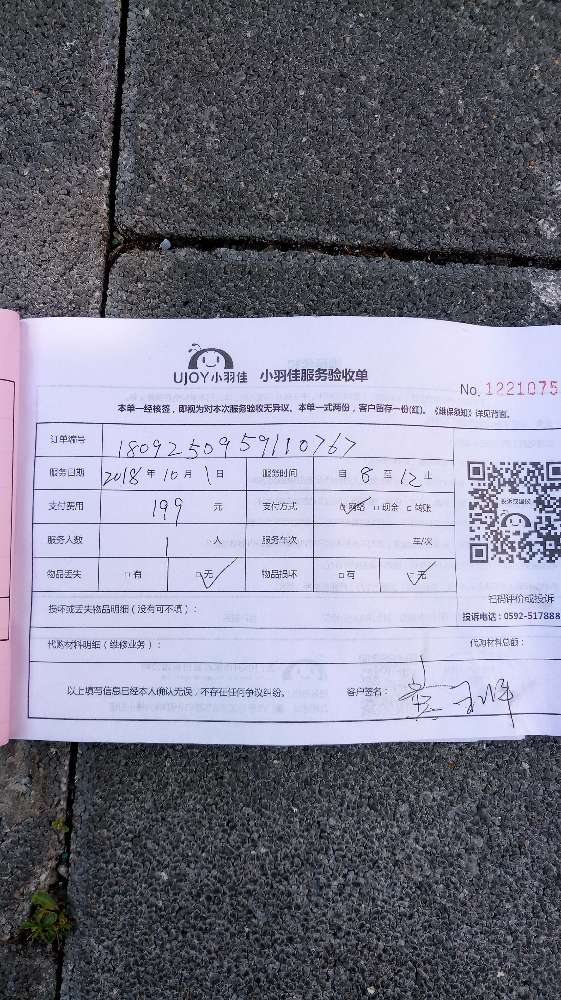 UJOY小羽佳 小羽佳服务验收单
No. 1221075
本单一经核签,即视为对本次服务验收无异议。本单一式两份,客户留存一份(红)。《维保须知》详见背面。
订单编号 18092509591110767
服务日期 2018年10月1日 服务时间 自8至12止
支付费用 199元 支付方式 ☑网络 □现金 □转账
服务人数 1人 服务车次 车/次
物品丢失 □有 ☑无 物品损坏 □有 ☑无
投诉或建议
扫码评价或投诉
投诉电话:0592-517888
损坏或丢失物品明细(没有可不填):
代购材料明细(维修业务): 代购材料总额:
以上填写信息已经本人确认无误,不存在任何争议纠纷。 客户签名: